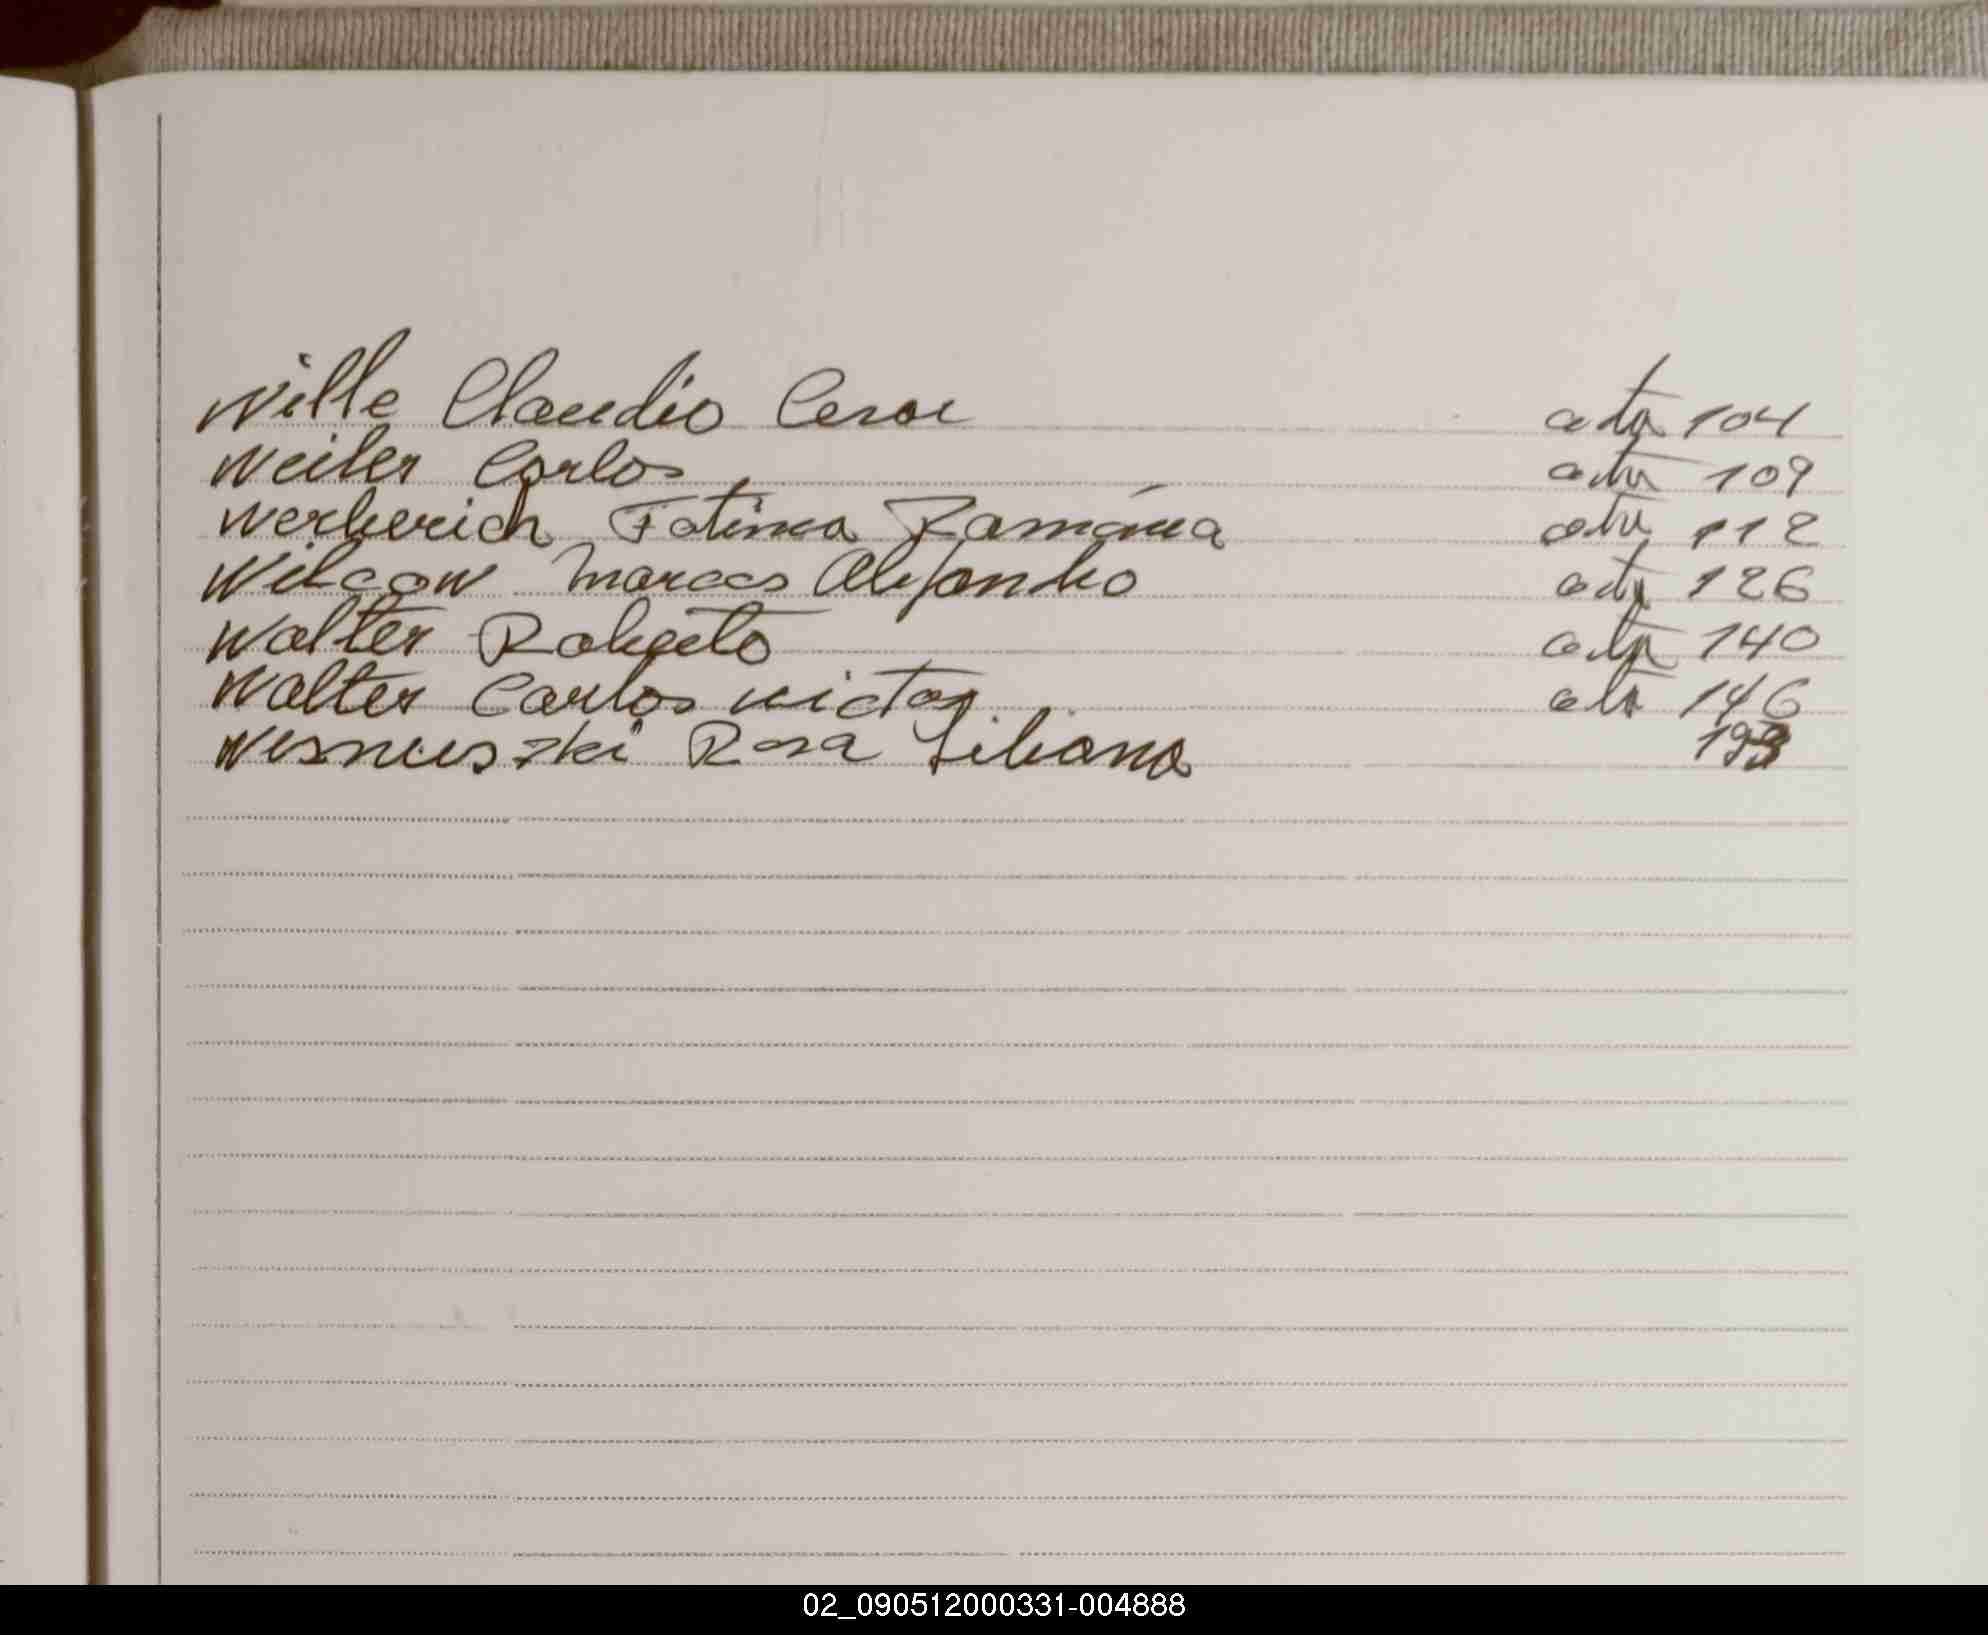 Wille Claudio Cesar acta 104
Weiler Carlos acta 109
Werberich Fatima Ramóna acta 112
Wilson Marcos Alejandro acta 126
Walter Roberto acta 140
Walter Carlos victor acta 146
Wisnieszki Rosa Liliana
02_090512000331-004888